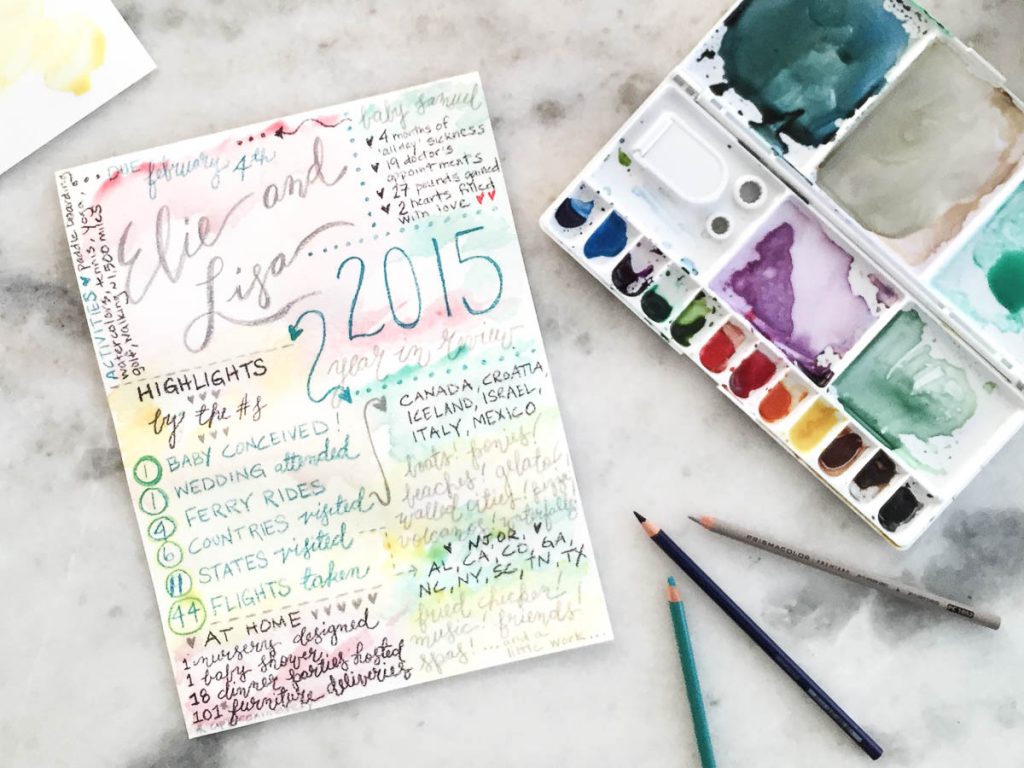 DUE february 4th
Elie and
Lisa
baby samuel
♥ 4 months of
'all day' sickness
♥ 19 doctor's
appointments
♥ 27 pounds gained
♥ 2 hearts filled
with love ♥♥
ACTIVITIES ♥ paddle boarding,
watercolors, tennis, yoga,
golf, walking ~1,500 miles
2015
year in review
HIGHLIGHTS
by the #s
1 BABY CONCEIVED!
1 WEDDING attended
4 FERRY RIDES
6 COUNTRIES visited
11 STATES visited
44 FLIGHTS taken
CANADA, CROATIA
ICELAND, ISRAEL,
ITALY, MEXICO
boats! ponies!
beaches! gelato!
walled cities! pizza
volcanos! waterfalls
♥ NJ, OR,
AL, CA, CO, GA,
NC, NY, SC, TN, TX
fried chicken!
music! friends!
spas! ...and a
little work...
AT HOME
1 nursery designed
1 baby shower
18 dinner parties hosted
101 furniture deliveries
PRISMACOLOR